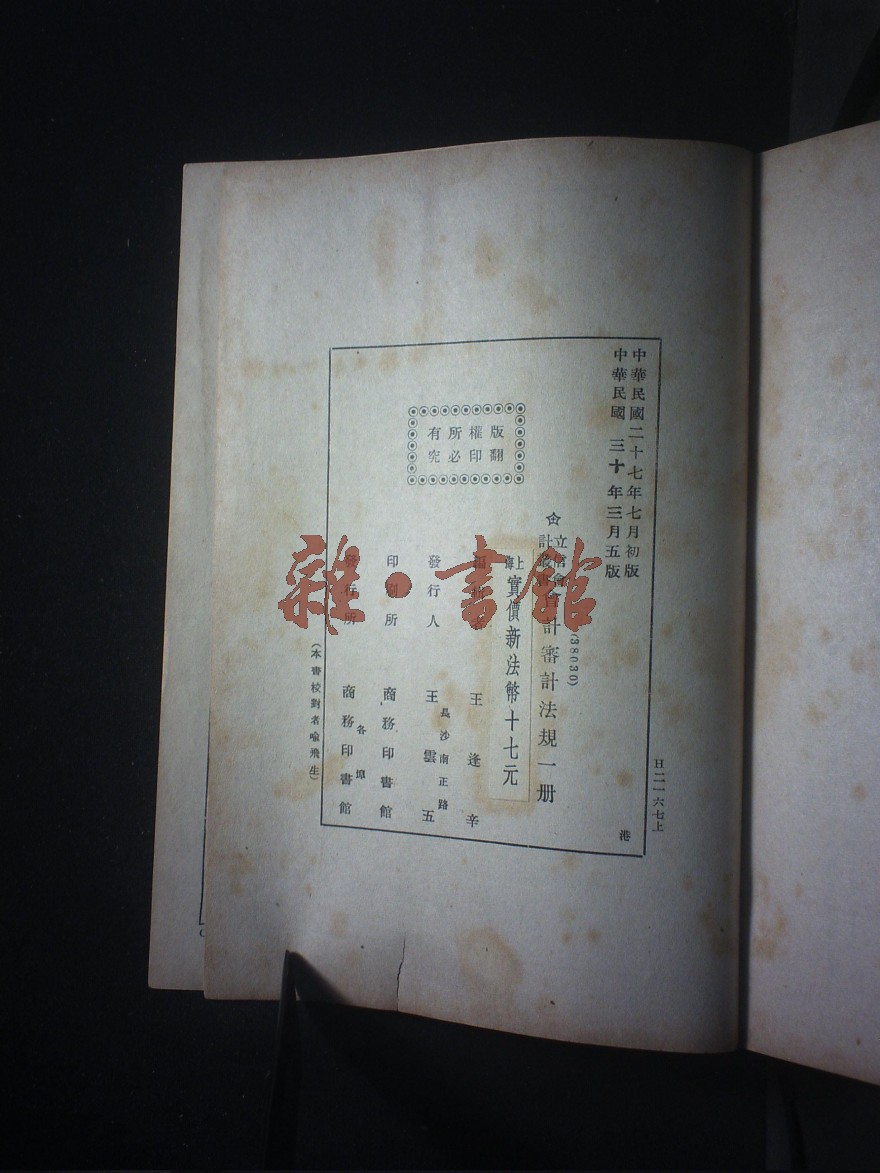 中華民國二十七年七月初版
中華民國三十年三月五版
(38030)
立信會
計叢書
會計審計法規一册
上海實價新法幣十七元
王逢辛
發行人 王雲五
長沙南正路
印刷所 商務印書館
各埠
發行所 商務印書館
(本書校對者喩飛生)
版權所有
翻印必究
港
H二一六七上
雜·書館